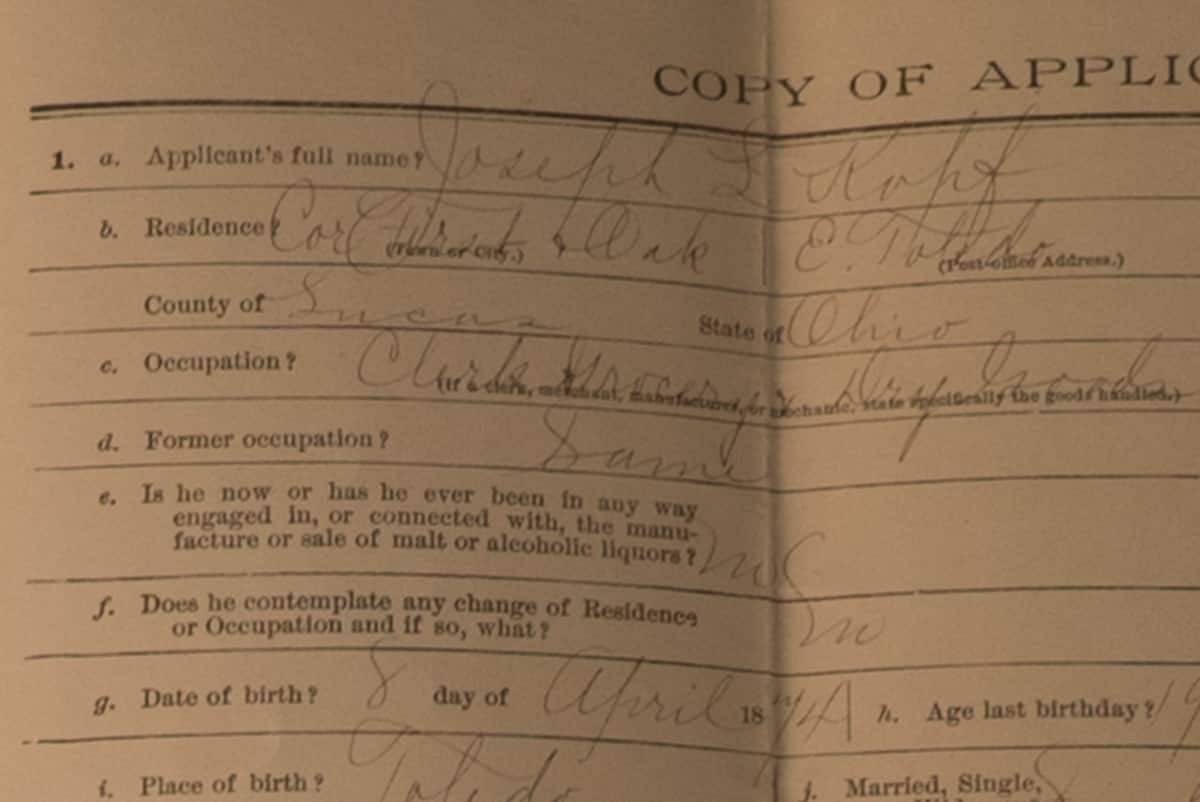 COPY OF APPLIC
1. a. Applicant's full name? Joseph L Kopf
b. Residence? Cor First & Oak E. Toledo
(Town or City.) (Post-office Address.)
County of Lucas State of Ohio
c. Occupation? Clerk Grocery & Dry Goods
(If a clerk, merchant, manufacturer, or mechanic, state specifically the goods handled.)
d. Former occupation? Same
e. Is he now or has he ever been in any way
engaged in, or connected with, the manu-
facture or sale of malt or alcoholic liquors? no
f. Does he contemplate any change of Residence
or Occupation and if so, what? no
g. Date of birth? 8 day of April 1874 h. Age last birthday? 19
i. Place of birth? Toledo j. Married, Single,